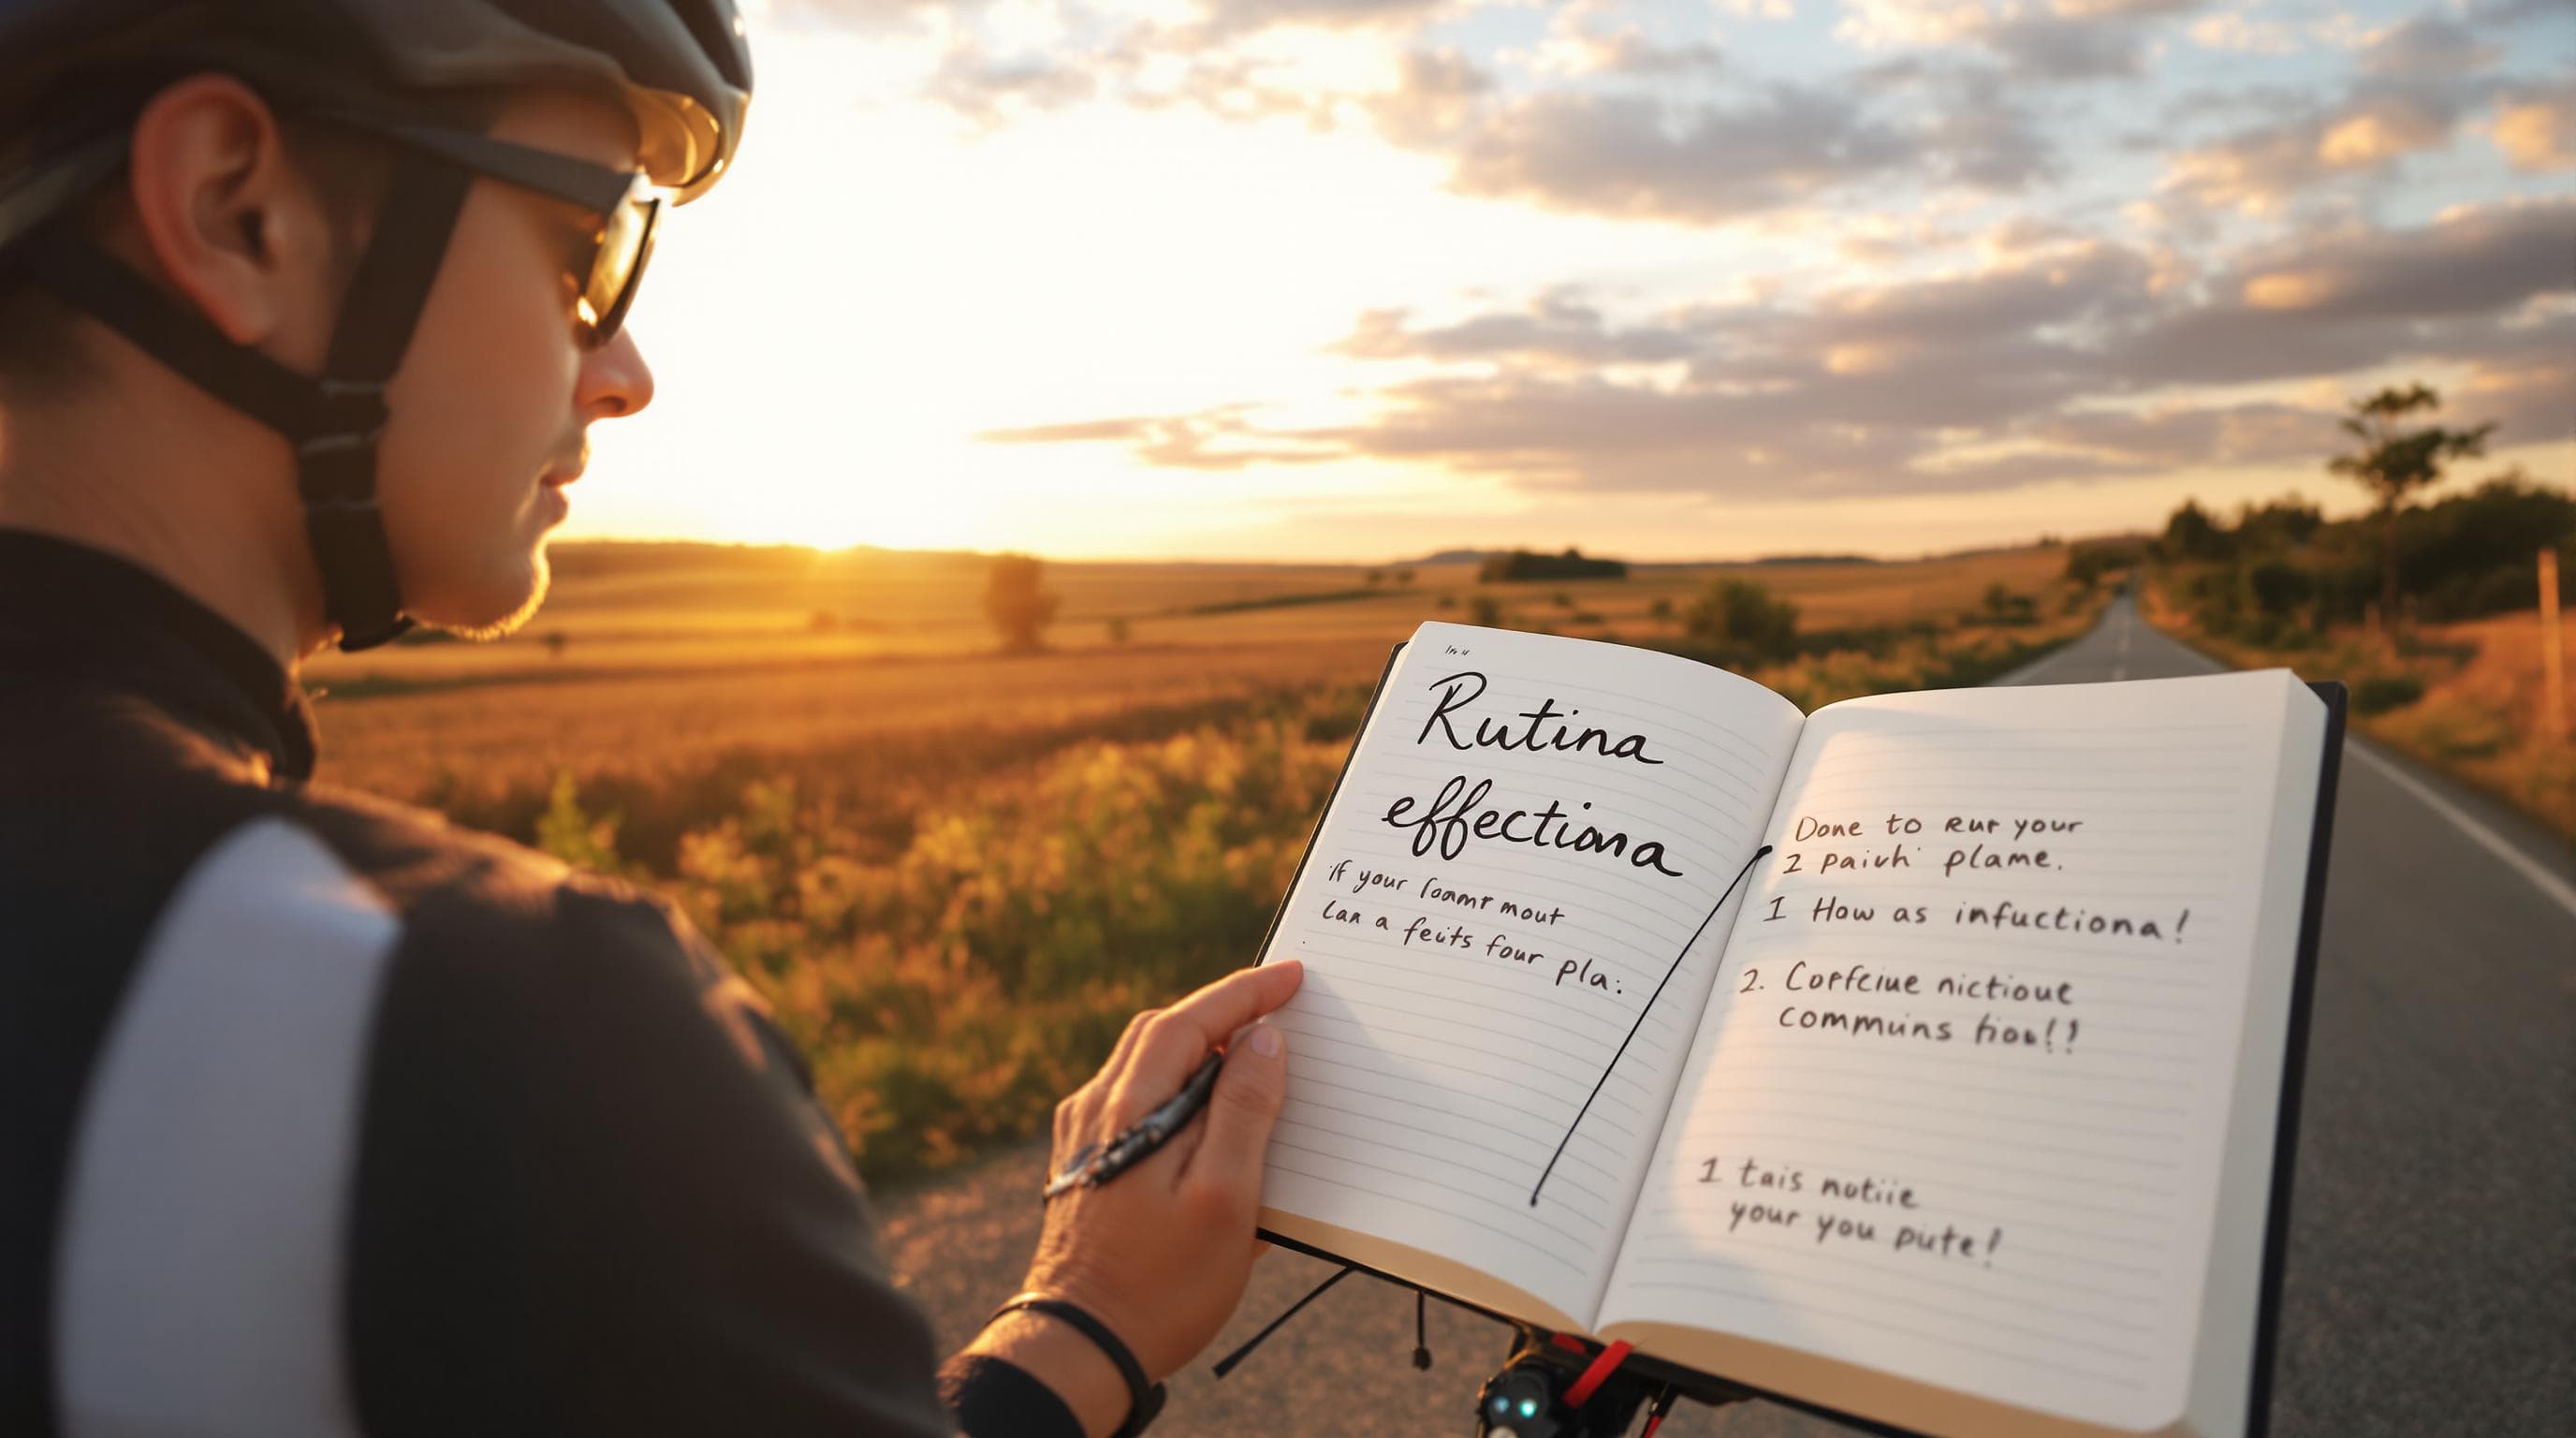 Rutina
effectiona
If your loamr mout
Lan a feits four pla:
Done to Rur your
2 paivh plame.
1 How as infuctiona!
2. Corfciue nictioue
communs hou!!
1 tais nutiie
your you pute!